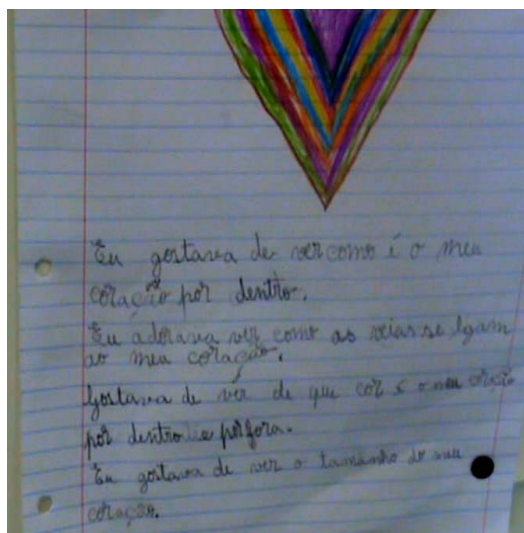 Eu gostava de ver como é o meu
coração por dentro.
Eu adorava ver como as veias se ligam
ao meu coração.
Gostava de ver de que cor é o meu coração
por dentro e por fora.
Eu gostava de ver o tamanho do meu
coração.